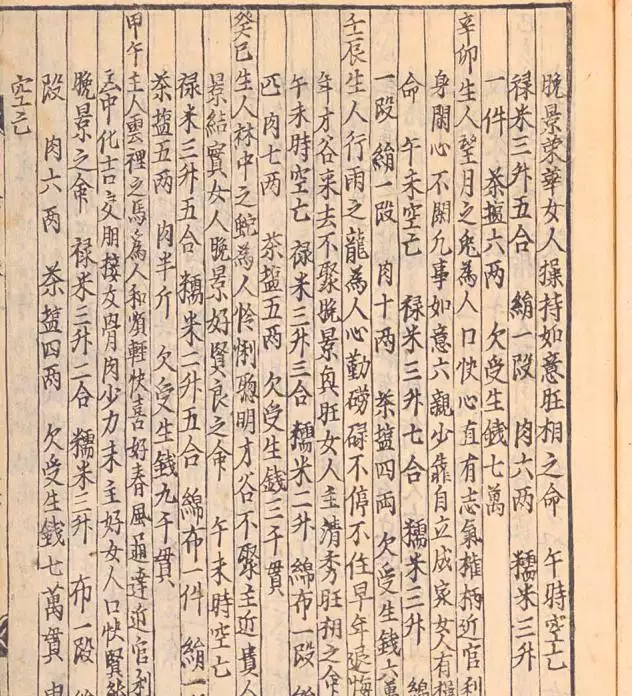 晚景荣華女人操持如意旺相之命　午時空亡
禄米三升五合　絹一段　肉六两　糯米三升
一件　茶塩六两　欠受生錢七萬
辛卯生人望月之兔為人口快心直有志氣權柄近官利
身閑心不閑凡事如意六親少靠自立成家女人有
命　午未空亡　禄米三升七合　糯米三升
一段　絹一段　肉十两　茶塩四両　欠受生錢
壬辰生人行雨之龍為人心勤磱碌不停不住早年退悔
年才谷来去不聚晚景真旺女人主清秀旺相之命
午未時空亡　禄米三升三合　糯米二升　綿布一段
匹　肉七两　茶塩五两　欠受生錢三千貫
癸巳生人林中之蛇為人怜悧聦明才谷不聚主近貴人
景結實女人晚景好賢良之命　午未時空亡
禄米三升五合　糯米二升五合　綿布一件　絹一
茶塩五两　肉半斤　欠受生錢九千貫
甲午生人雲裡之馬為人和順輕快喜好春風通達近官利
三中化吉交朋接友骨肉少力末主好女人口快賢
晚景之命　禄米三升二合　糯米三升　布一段
段　肉六两　茶塩四两　欠受生錢七萬貫
空亡